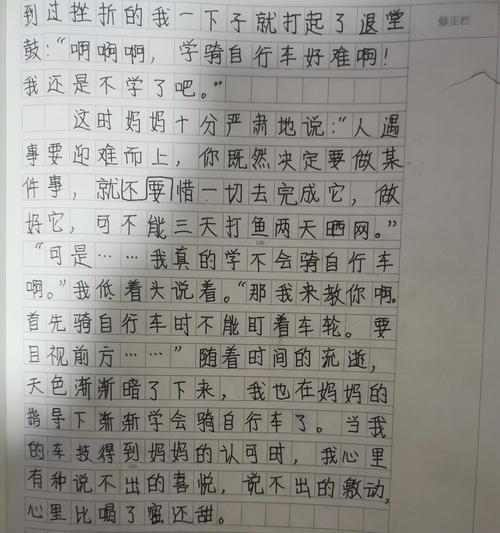 到过挫折的我一下子就打起了退堂
修正栏
鼓:“啊啊啊，学骑自行车好难啊!
我还是不学了吧。”
这时妈妈十分严肃地说:“人遇
事要迎难而上，你既然决定要做某
件事，就还要惜一切去完成它，做
好它，可不能三天打鱼两天晒网。”
100
“可是……我真的学不会骑自行车
啊。”我低着头说着。“那我来教你啊。
首先骑自行车时不能盯着车轮。要
目视前方……”随着时间的流逝，
天色渐渐暗了下来，我也在妈妈的
指导下渐渐学会骑自行车了。当我
的车技得到妈妈的认可时，我心里
200
有种说不出的喜悦，说不出的激动，
心里比喝了蜜还甜。